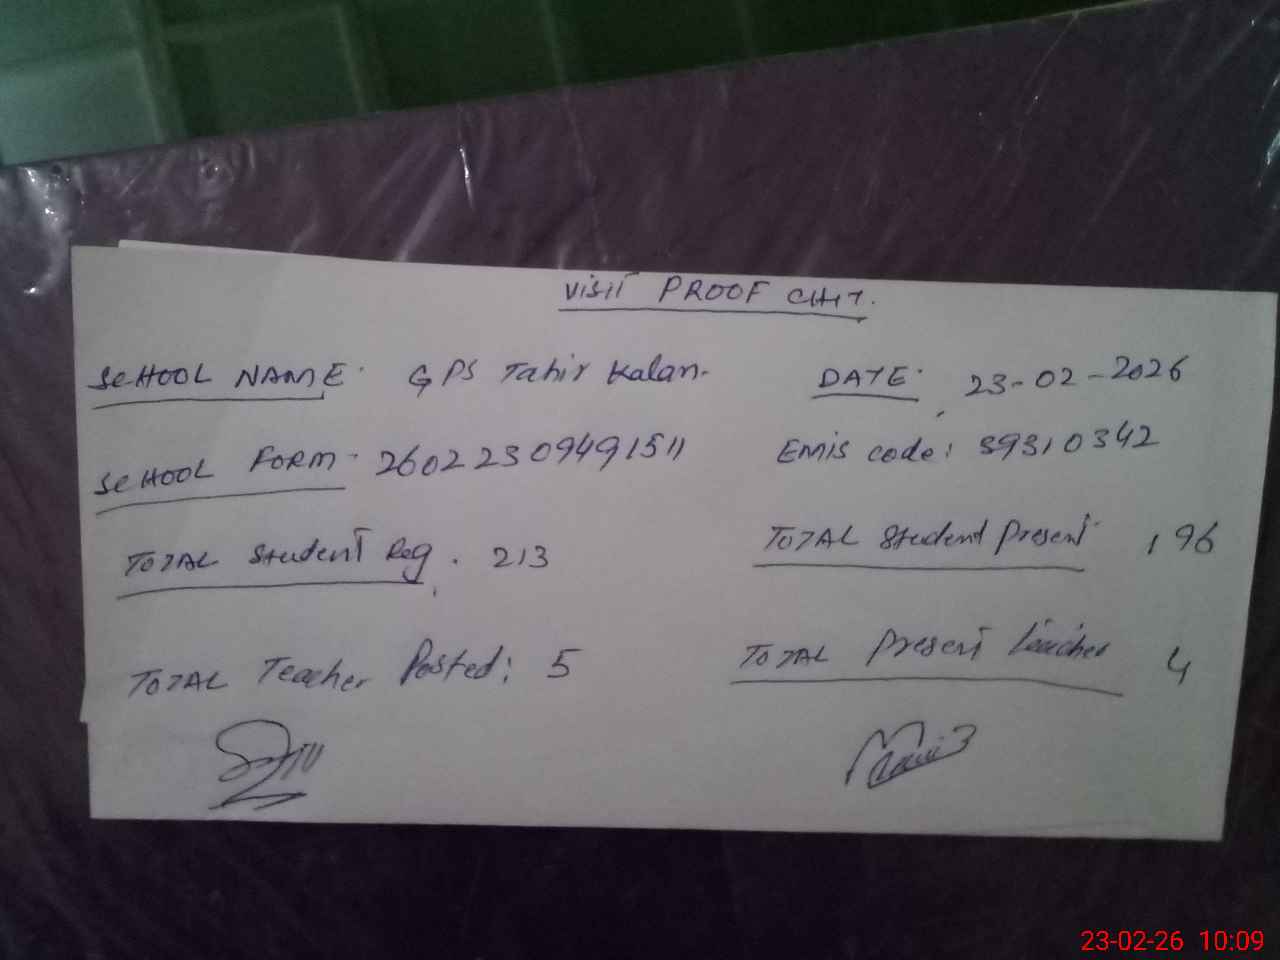 VISIT PROOF CHIT.
SCHOOL NAME. GPS Tahir Kalan. DATE. 23-02-2026
SCHOOL FORM. 260223094915 11 EMIS code: 39310342
TOTAL Student Reg. 213 TOTAL Student Present 196
TOTAL Teacher Posted: 5 TOTAL Present teacher 4
23-02-26 10:09